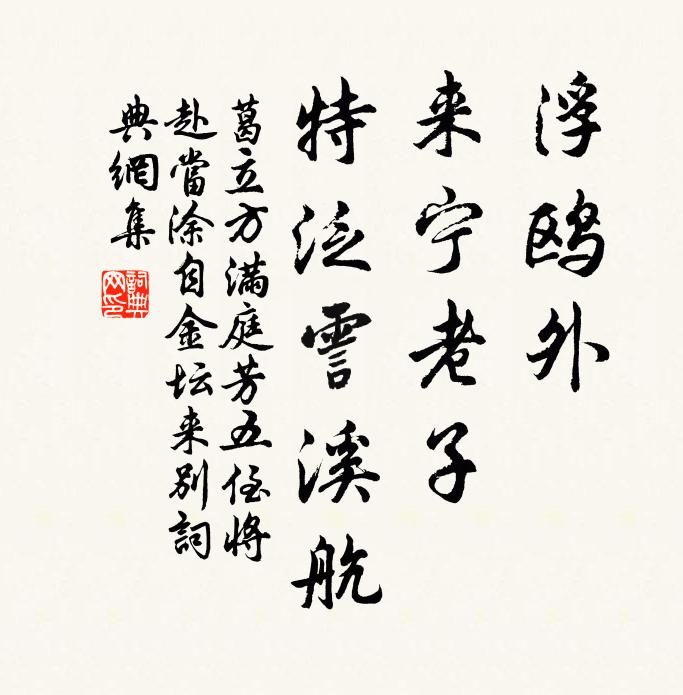 浮鸥外
来宁老子
特泛霅溪航
葛立方满庭芳五侄将
赴當涂自金坛来别詞
典網集
詞典
网印